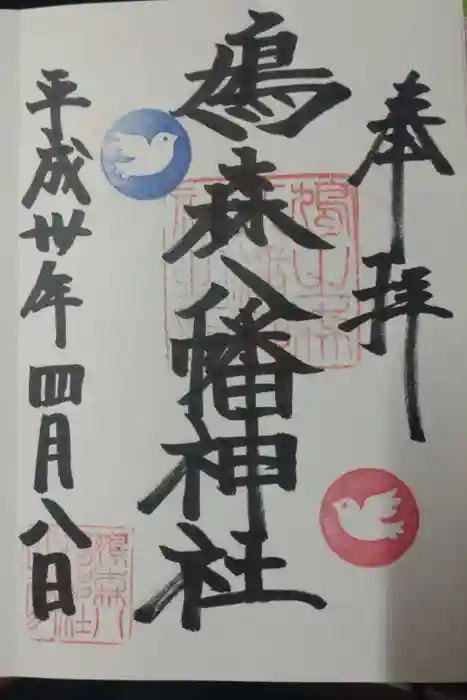 奉拝
鳩森八幡神社
平成丗年四月八日